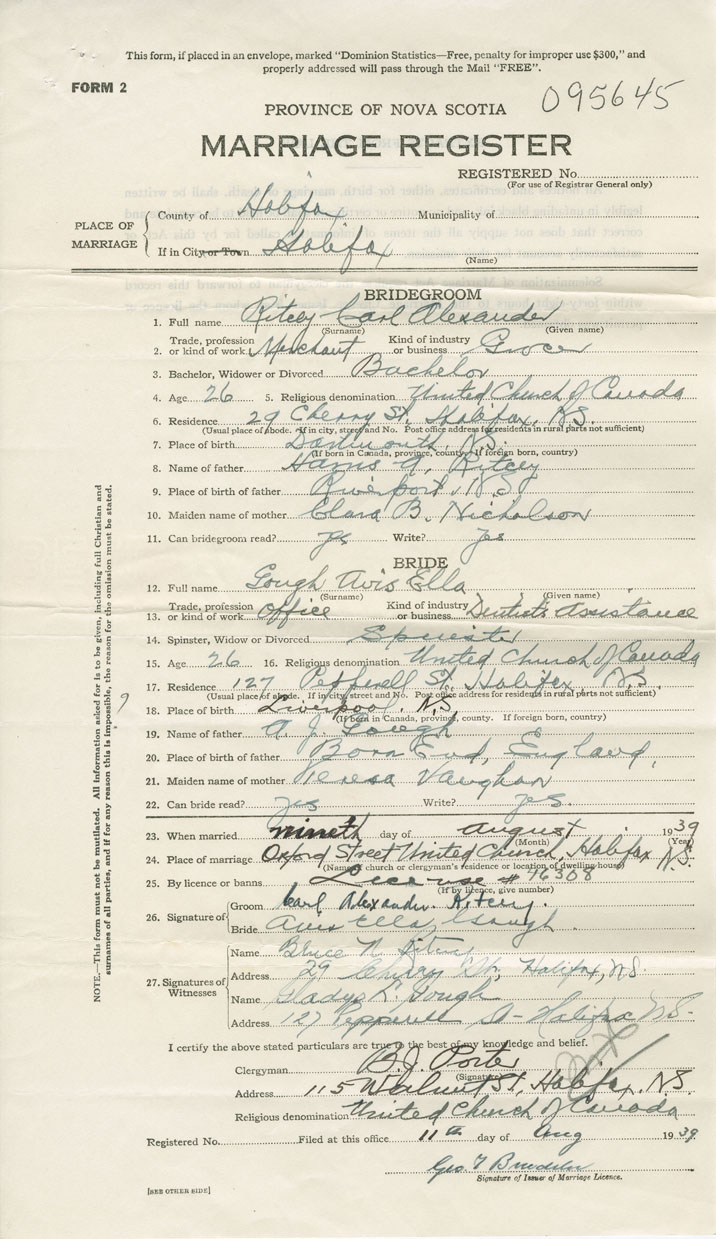 This form, if placed in an envelope, marked "Dominion Statistics—Free, penalty for improper use $300," and
properly addressed will pass through the Mail "FREE".
FORM 2
095645
PROVINCE OF NOVA SCOTIA
MARRIAGE REGISTER
REGISTERED No.
(For use of Registrar General only)
PLACE OF MARRIAGE
County of Halifax Municipality of
If in City or Town Halifax
(Name)
BRIDEGROOM
1. Full name Ritcey Carl Alexander
(Surname) (Given name)
2. Trade, profession or kind of work Merchant Kind of industry or business Grocer
3. Bachelor, Widower or Divorced Bachelor
4. Age 26 5. Religious denomination United Church of Canada
6. Residence 29 Cherry St. Halifax, N.S.
(Usual place of abode. If in city, street and No. Post office address for residents in rural parts not sufficient)
7. Place of birth Dartmouth, N.S.
(If born in Canada, province, county. If foreign born, country)
8. Name of father Harris A. Ritcey
9. Place of birth of father Riverport, N.S.
10. Maiden name of mother Clara B. Nicholson
11. Can bridegroom read? yes Write? yes
BRIDE
12. Full name Gough Avis Ella
(Surname) (Given name)
13. Trade, profession or kind of work Office Kind of industry or business Dentists Assistance
14. Spinster, Widow or Divorced Spinster
15. Age 26 16. Religious denomination United Church of Canada
17. Residence 127 Pepperell St. Halifax N.S.
(Usual place of abode. If in city, street and No. Post office address for residents in rural parts not sufficient)
18. Place of birth Liverpool, N.S.
(If born in Canada, province, county. If foreign born, country)
19. Name of father A. J. Gough
20. Place of birth of father England,
21. Maiden name of mother Teresa Vaughan
22. Can bride read? yes Write? yes.
23. When married nineth day of August 1939
(Month) (Year)
24. Place of marriage Oxford Street United Church, Halifax N.S.
(Name of church or clergyman's residence or location of dwelling house)
25. By licence or banns License # 76308
(If by licence, give number)
26. Signature of
Groom Carl Alexander Ritcey.
Bride Avis Ella Gough
27. Signatures of Witnesses
Name Bruce
Address 29 Cherry St., Halifax, N.S.
Name Gladys L. Gough
Address 127 Pepperell St- Halifax N.S-
I certify the above stated particulars are true to the best of my knowledge and belief.
Clergyman B.J. Porter
(Signature)
Address 115 Walnut St, Halifax, N.S.
Religious denomination United Church of Canada
Registered No. Filed at this office 11th day of Aug 1939
Geo. T
Signature of Issuer of Marriage Licence.
[SEE OTHER SIDE]
NOTE.—This form must not be mutilated. All information asked for is to be given, including full Christian and
surnames of all parties, and if for any reason this is impossible, the reason for the omission must be stated.